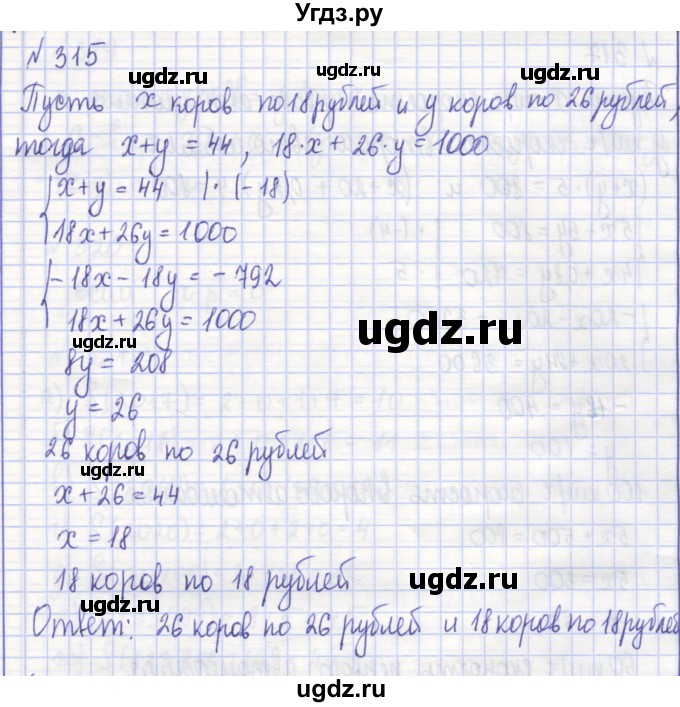 Угдз.ру
№ 315
ugdz.ru ugdz.ru
Пусть x коров по 18 рублей и y коров по 26 рублей,
тогда x+y = 44, 18·x + 26·y = 1000
x + y = 44 |·(-18)
18x + 26y = 1000
-18x - 18y = -792
18x + 26y = 1000
ugdz.ru
ugdz.ru
8y = 208
y = 26
26 коров по 26 рублей
ugdz.ru
x + 26 = 44
x = 18
ugdz.ru
18 коров по 18 рублей
ugdz.ru
Ответ: 26 коров по 26 рублей и 18 коров по 18 рублей
ugdz.ru
ugdz.ru